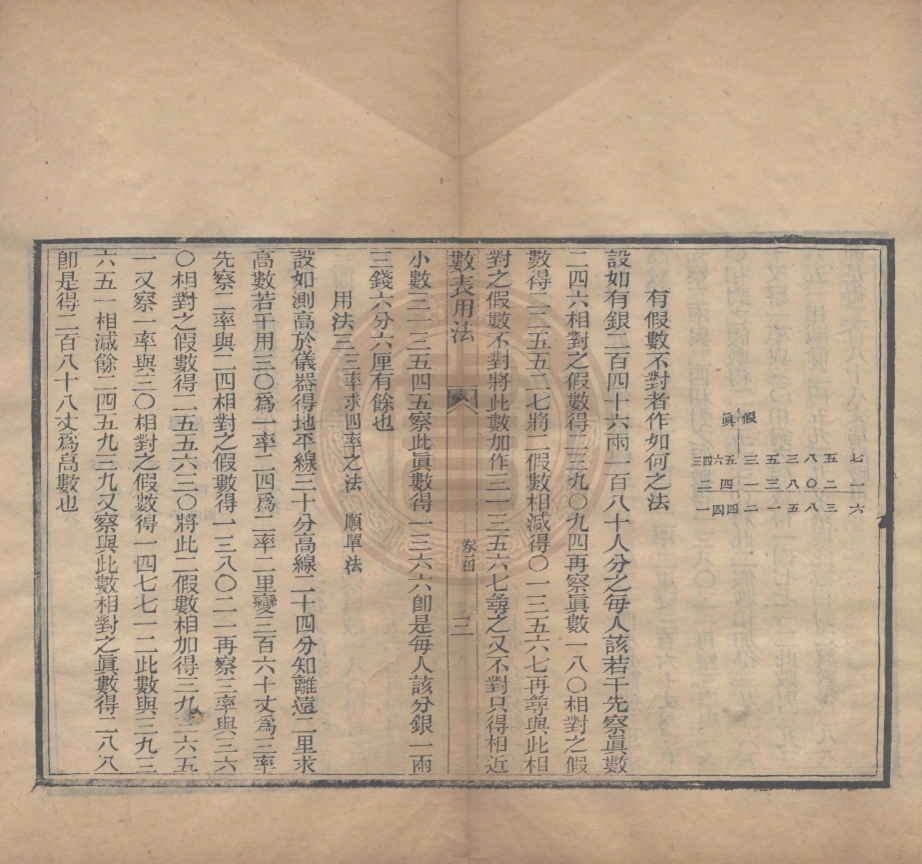 三四六五 三五三八五七
二四 一三八〇二一
一四四 二一五八三六
假
眞
有假數不對者作如何之法
設如有銀二百四十六兩一百八十人分之每人該若干先察眞數
二四六相對之假數得二三九〇九四再察眞數一八〇相對之假
數得二二五五二七將二假數相減得〇一三五六七再尋與此相
對之假數不對將此數加作三一三五六七尋之又不對只得相近
數表用法
卷首
三
小數三一三五四五察此眞數得一三六六卽是每人該分銀一兩
三錢六分六厘有餘也
用法三 三率求四率之法 順單法
設如測高於儀器得地平線三十分高線二十四分知離遠二里求
高數若干用三〇爲一率二四爲二率二里變三百六十丈爲三率
先察二率與二四相對之假數得一三八〇二一再察三率與三六
〇相對之假數得二五五六三〇將此二假數相加得三九三六五
一又察一率與三〇相對之假數得一四七七一二此數與三九三
六五一相減餘二四五九三九又察與此數相對之眞數得二八八
卽是得二百八十八丈爲高數也